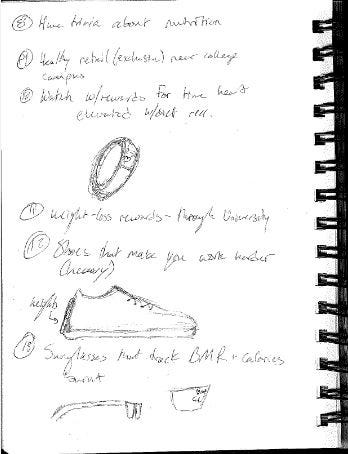 ⑧ Have trivia about nutrition
⑨ Healthy retail (exclusive) near college
campus
⑩ Watch w/rewards for time heart
elevated w/diet rec.
⑪ Weight-loss rewards - Through University
⑫ Shoes that make you work harder
(heavy)
weights
⑬ Sunglasses that track BMR + calories
burnt